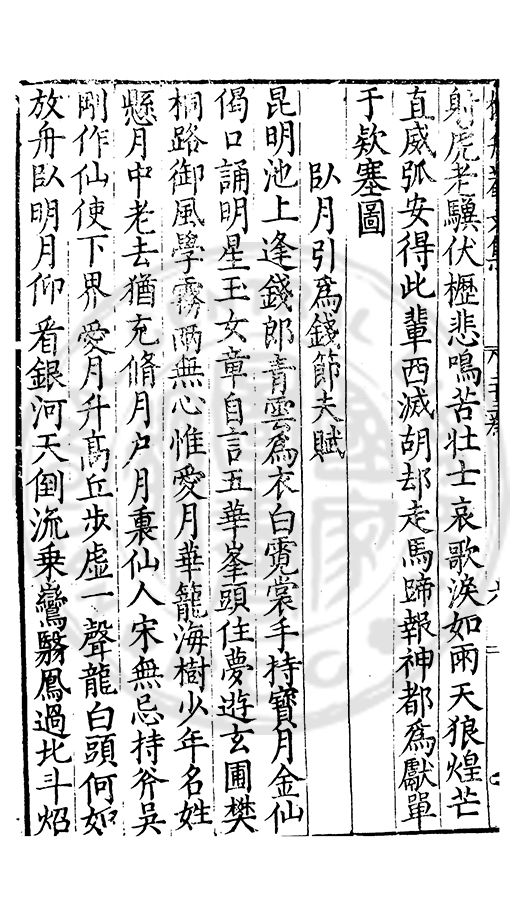 射虎老驥伏櫪悲鳴苦壯士哀歌淚如雨天狼煌芒
直威弧安得此輩西滅胡却走馬蹄報神都爲獻單
于欵塞圖
臥月引爲錢節夫賦
昆明池上逢錢郎青雲爲衣白霓裳手持寶月金仙
偈口誦明星玉女章自言五華峯頭住夢遊玄圃樊
桐路御風學霧兩無心惟愛月華籠海樹少年名姓
懸月中老去猶充脩月戶月裏仙人宋無忌持斧吳
剛作仙使下界愛月升高丘步虛一聲龍白頭何如
放舟臥明月仰看銀河天倒流乘鸞翳鳳過北斗炤